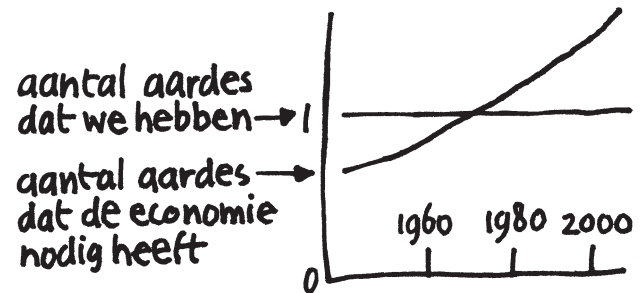 aantal aardes
dat we hebben → 1
aantal aardes →
dat de economie
nodig heeft
1960 1980 2000
0